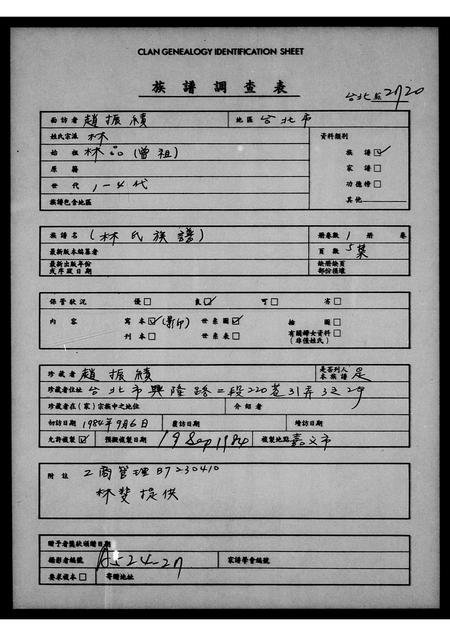 CLAN GENEALOGY IDENTIFICATION SHEET
族譜調查表
台北縣 2720
面訪者 趙振績 地區 台北市
姓氏宗派 林 資料類別
始祖 林 (曾祖) 族譜☑
原籍 家譜☐
世代 1-4代 功德榜☐
族譜包含地區 其他
族譜名 (林氏族譜) 冊卷數 1 冊 卷
最新版本編纂者 頁數 5葉
最新出版年份或序跋日期 缺冊缺頁部份損壞
保管狀況 優☐ 良☑ 可☐ 劣☐
內容 寫本☑(影印) 世系圖☑ 繪圖☐
刊本☐ 世系表☐ 有關婦女資料☐(非僅姓氏)
珍藏者 趙振績 是否列入本族譜 是
珍藏者住址 台北市興隆路二段220巷31弄3之2号
珍藏者在(家)宗族中之地位 介紹者
初訪日期 1984年9月6日 覆訪日期 續訪日期
允許複製☑ 預擬複製日期 19 Sep 1984 複製地點 嘉义市
附註 工商管理 B7230410
林斐提供
贈予者獎狀頒贈日期
攝影者編號 A-524-27 家譜學會編號
要求複本☐ 寄贈地址